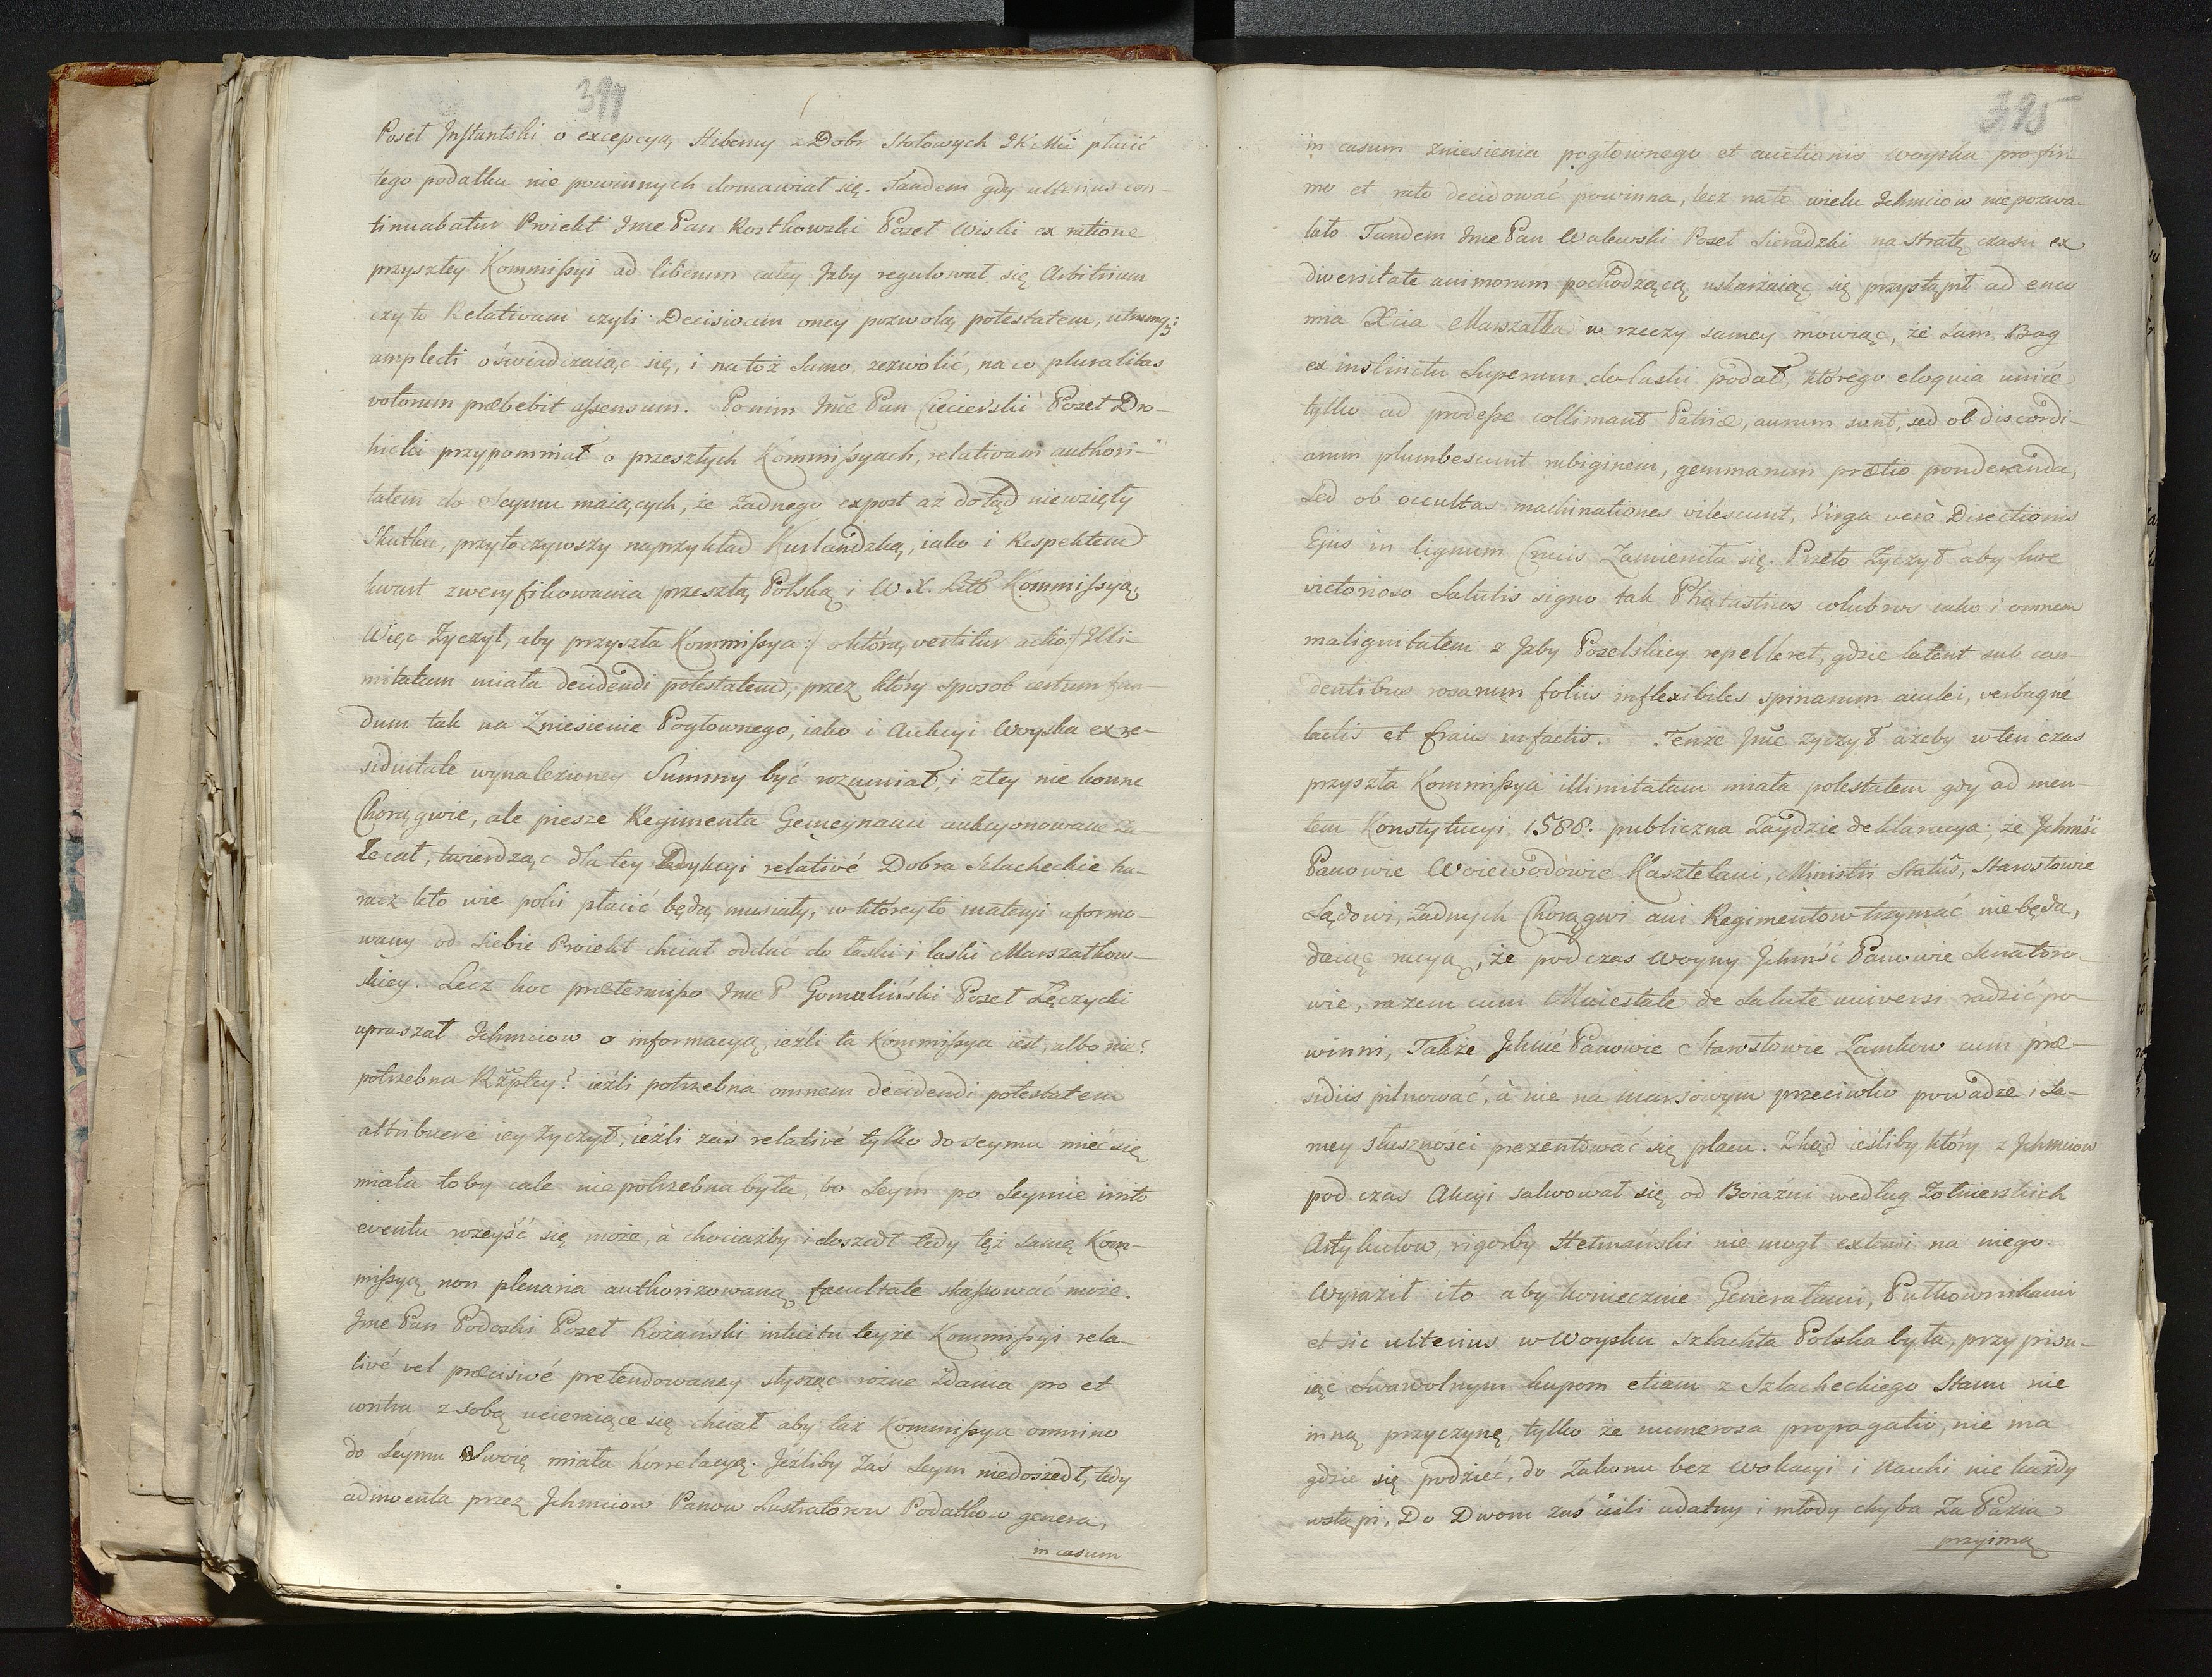 394
Poseł Inflantski o excepcyą Hiberny z Dobr Stołowych JKMci płacić
tego podatku nie powinnych domawiał się. Tandem gdy ulterius con-
tinuabatur Proiekt Jmc Pan Rostkowski Poseł Wiski ex ratione
przyszłey Kommißyi ad liberum całey Izby regulował się Arbitrium
czy to Relativam czyli Decisivam oney pozwolą potestatem, utrumq;
amplecti oświadczaiąc się, i na toż samo zezwolić, na co pluralitas
votorum præbebit aßensum. Ponim Jmc Pan Ciecierski Poseł Dro-
hicki przypomniał o przeszłych Kommißyach, relativam authori-
tatem do Seymu maiących, że żadnego expost aż dotąd niewzięły
Skutku, przytoczywszy naprzykład Kurlandzką, iako i Respektem
kwart zweryfikowania przeszłą Polską i W. X. Litt Kommißyą,
Więc życzył, aby przyszła Kommißya :/ o którą vertitur actio :/ Illi-
mitatam miała decidendi potestatem, przez który sposob certum fun-
dum tak na Zniesienie Pogłownego, iako i Aukcyi Woyska ex re-
siduitate wynalezioney Summy być rozumiał, i z tey nie konne
Chorągwie, ale piesze Regimenta Gemeynami aukcyonowane Za-
lecał, twierdząc dla tey Adykcyi relativé Dobra Szlacheckie ha-
racz kto wie poki płacić będą musiały, w któreyto materyi uformo-
wany od siebie Proiekt chciał oddać do łaski i laski Marszałkow-
skiey. Lecz hoc prætermißo Jmc P Gomoliński Poseł Łęczycki
upraszał Ichmciow o informacyą, ieżli ta Kommißya iest, albo nie?
potrzebna Rzptey? ieżli potrzebna omnem decidendi potestatem
attribuere iey życzył, ieżli zaś relativé tylko do seymu mieć się
miała toby cale niepotrzebna była, bo Seym po Seymie irrito
eventu rozeyść się może, à chociażby i doszedł tedy tęż samę Kom-
mißyą non plenaria authorizowaną facultate skaßować może.
Jmc Pan Podoski Poseł Rożański intuitu teyże Kommißyi rela-
tivé vel præcisivé pretendowaney słysząc rożne Zdania pro et
contra z sobą ucieraiące się chciał aby taż Kommißya omnino
do Seymu Swoię miała korrelacyą. Jeżliby Zaś Seym niedoszedł, tedy
adinventa przez Ichmciow Panow Lustratorow Podatkow genera,
in casum
395
in casum zniesienia pogłownego et auctionis woyska pro fir-
mo et rato decidować powinna, lecz na to wielu Ichmciow niepozwa-
lało. Tandem Jmc Pan Walewski Poseł Sieradzki na Stratę czasu ex
diversitate animorum pochodzącą uskarżaiąc się przystąpił ad enco
mia Xcia Marszałka w rzeczy samey mowiąc, że sam Bog
ex instinctu Superum do laski podał, którego eloquia unicé
tylko ad prodeße collimant Patriæ, aurum sunt, sed ob discordi-
arum plumbescunt rubiginem, gemmarum prætio ponderanda,
sed ob occultas machinationes vilescunt, Virga verò Directionis
Ejus in lignum Crucis Zamieniła się. Przeto Zyczył aby hoc
victorioso Salutis signo tak Phatasticos colubros iako i omnem
malignitatem z Izby Poselskiey repelleret, gdzie latent sub can-
dentibus rosarum foliis inflexibiles spinarum aculei, verbaque
lactis et fraus in factis. Tenże Jmc życzył ażeby w ten czas
przyszła Kommißya illimitatam miała potestatem gdy ad men-
tem Konstytucyi 1588. publiczna Zaydzie deklaracya, że Ichmść
Panowie Woiewodowie Kasztelani, Ministri Statûs, Starostowie
Sądowi, Zadnych Chorągwi ani Regimentow trzymać nie będą,
daiąc racyą, że pod czas Woyny Ichmść Panowie Senatoro-
wie, razem cum Maiestate de Salute universi radzić po-
winni, Także Ichmć Panowie Starostowie Zamkow cum præ-
sidiis pilnować, à nie na marsowym przeciwko powadze i Sa-
mey słuszności prezentować się placu. Zkąd ieśliby który z Ichmciow
pod czas Akcyi salwował się od Boiaźni według Żołnierskich
Artykułow, rigorby Hetmański nie mogł extendi na niego
Wyraził i to aby koniecznie Generałami, Pułkownikami
et sic ulterius w Woysku szlachta Polska była, przypisu-
iąc Swawolnym kupom etiam z Szlacheckiego Stanu nie
inną przyczynę, tylko że numerosa propagatio, nie ma
gdzie się podzieć, do Zakonu bez Wokacyi i Nauki nie każdy
wstąpi, Do Dworu zaś ieśli udatny i młody chyba Za Pazia
przyimą